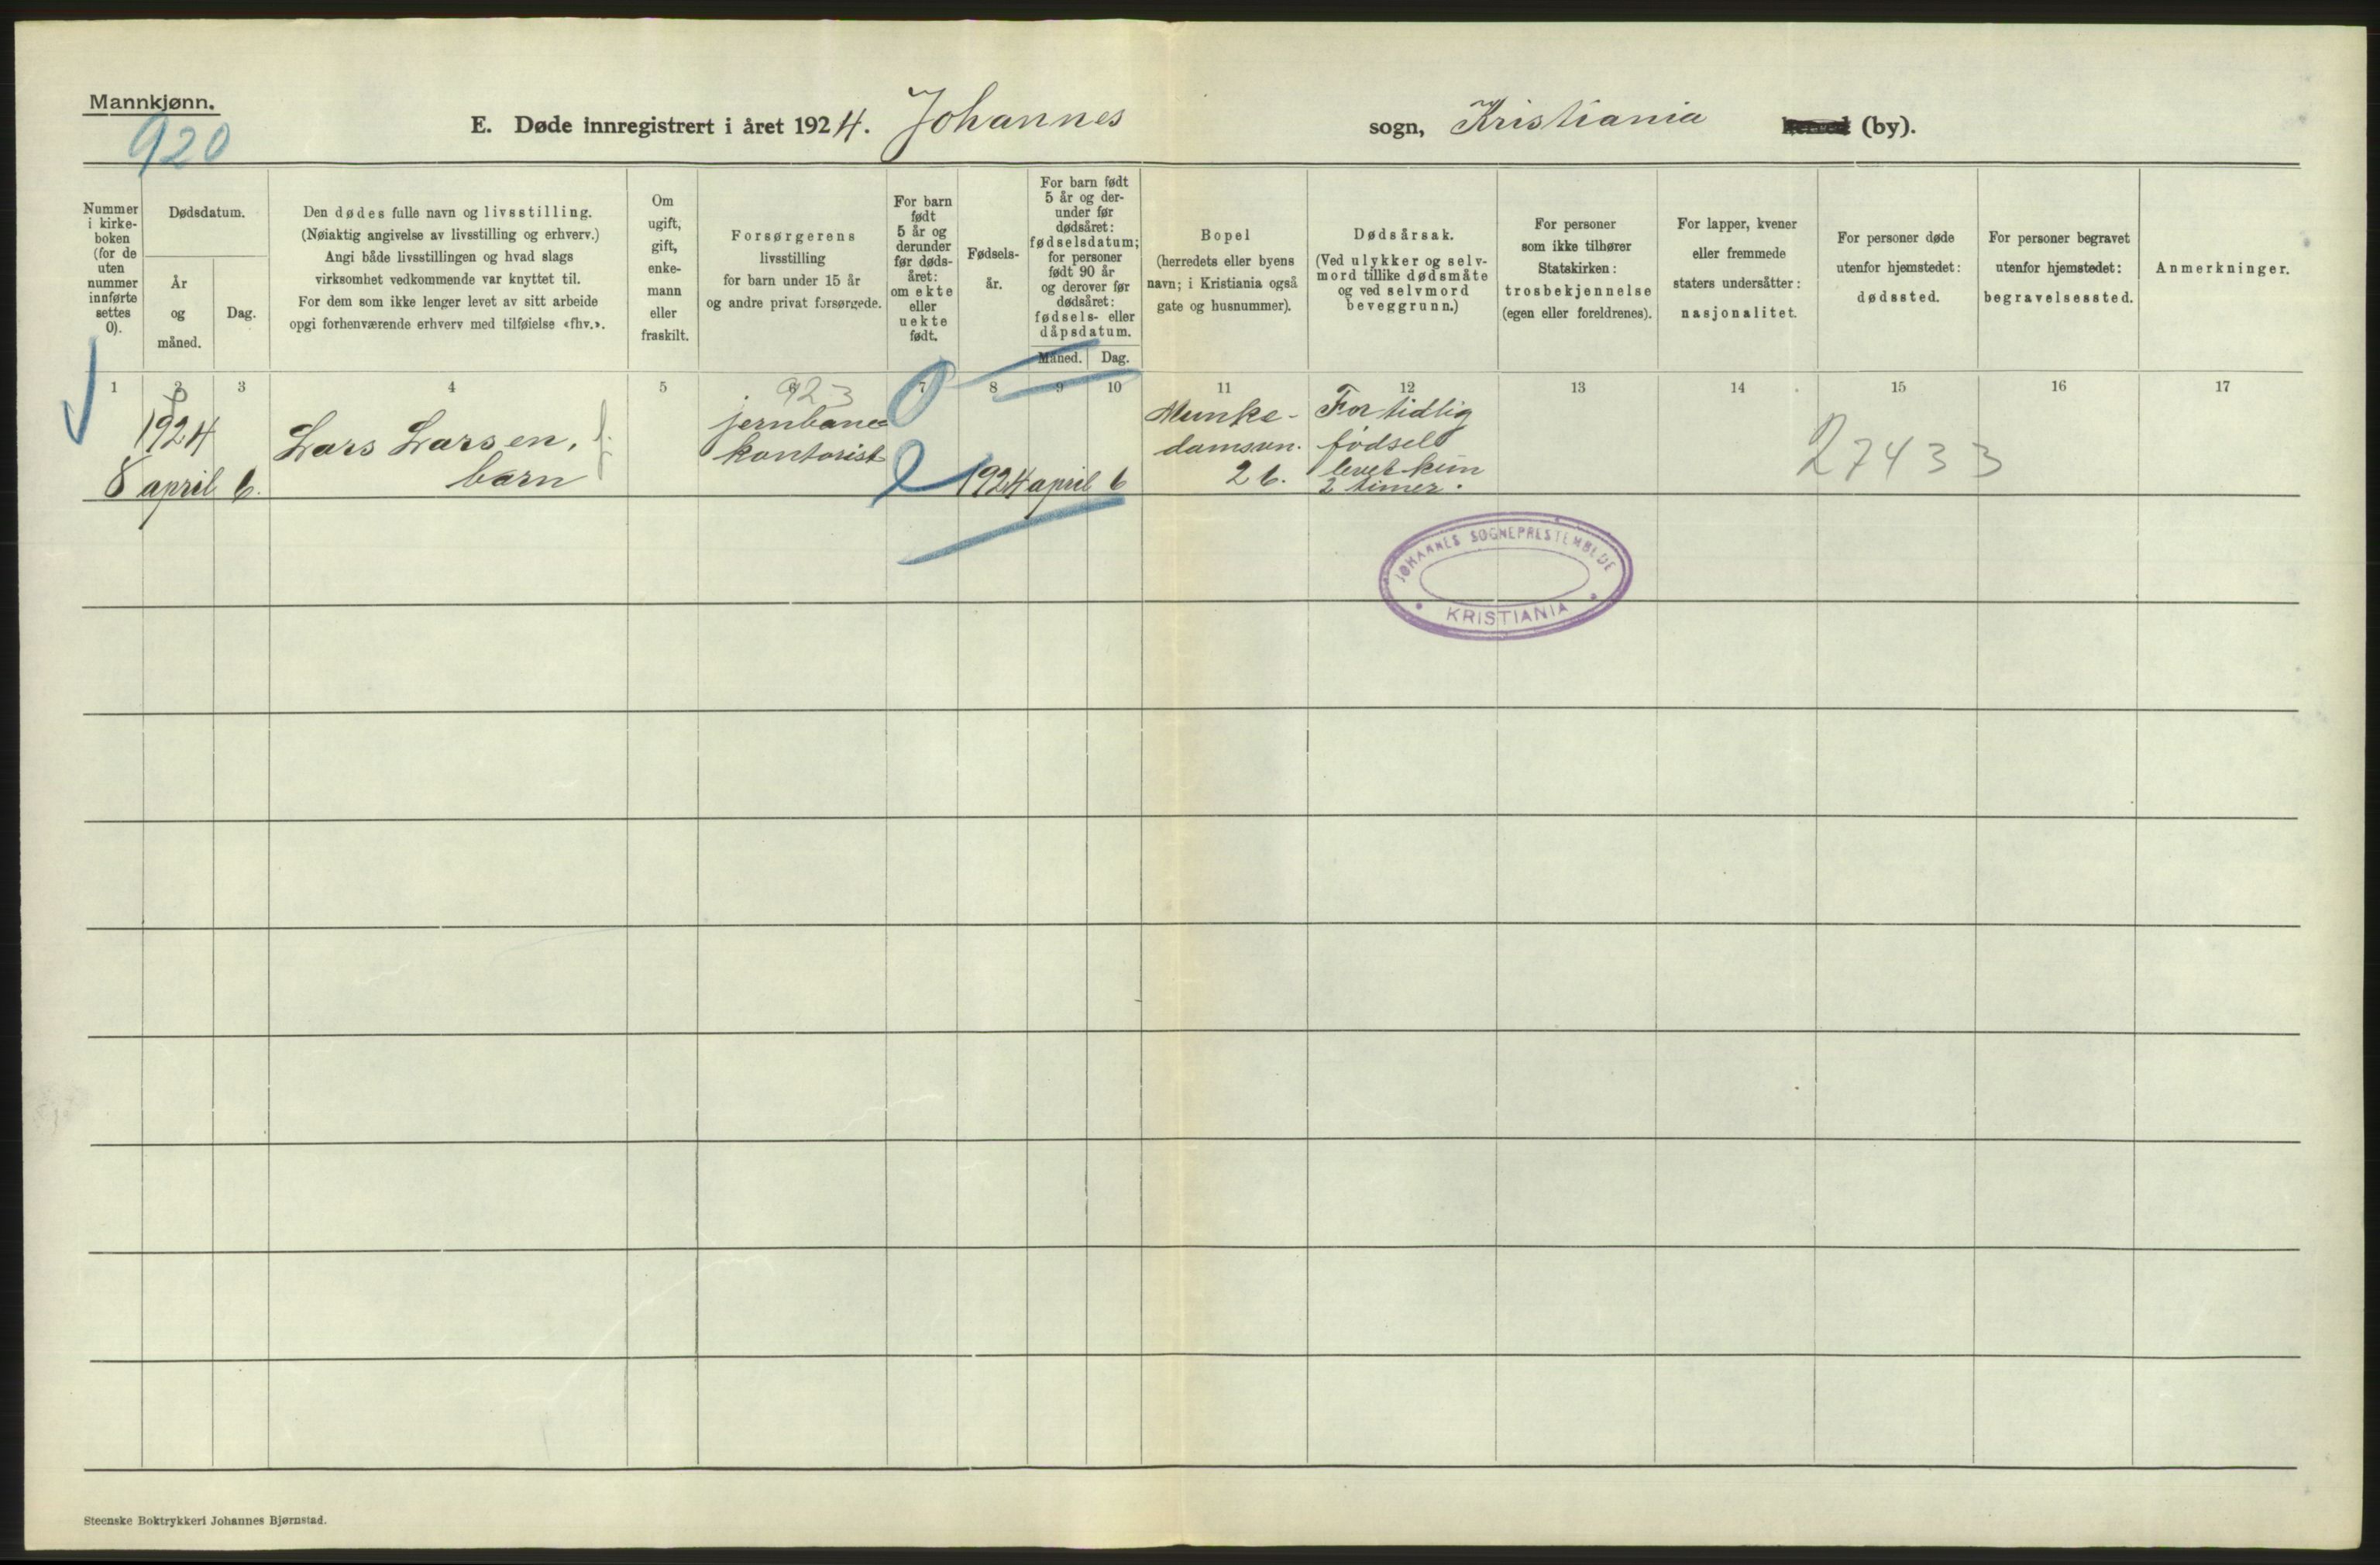 Mannkjønn.
920
E. Døde innregistrert i året 1924. Johannes sogn, Kristiania (by).
Nummer
i kirke-
boken
(for de
uten
nummer
innførte
settes
0).
Dødsdatum.
År
og
måned.
Dag.
Den dødes fulle navn og livsstilling.
(Nøiaktig angivelse av livsstilling og erhverv.)
Angi både livsstillingen og hvad slags
virksomhet vedkommende var knyttet til.
For dem som ikke lenger levet av sitt arbeide
opgi forhenværende erhverv med tilføielse «fhv.».
Om
ugift,
gift,
enke-
mann
eller
fraskilt.
Forsørgerens
livsstilling
for barn under 15 år
og andre privat forsørgede.
For barn
født
5 år og
derunder
før døds-
året:
om ekte
eller
uekte
født.
Fødsels-
år.
For barn født
5 år og der-
under før
dødsåret:
fødselsdatum;
for personer
født 90 år
og derover før
dødsåret:
fødsels- eller
dåpsdatum.
Måned. Dag.
Bopel
(herredets eller byens
navn; i Kristiania også
gate og husnummer).
Dødsårsak.
(Ved ulykker og selv-
mord tillike dødsmåte
og ved selvmord
beveggrunn.)
For personer
som ikke tilhører
Statskirken:
trosbekjennelse
(egen eller foreldrenes).
For lapper, kvener
eller fremmede
staters undersåtter:
nasjonalitet.
For personer døde
utenfor hjemstedet:
dødssted.
For personer begravet
utenfor hjemstedet:
begravelsessted.
Anmerkninger.
1 2 3 4 5 6 7 8 9 10 11 12 13 14 15 16 17
923
0
8
1924
april
6.
Lars Larsen,
barn
jernbane=
kontorist
1924
april
6
Munke-
damsvn.
26.
For tidlig
fødsel
levet kun
2 timer.
27433
JOHANNES SOGNEPRESTEMBEDE
KRISTIANIA
Steenske Boktrykkeri Johannes Bjørnstad.